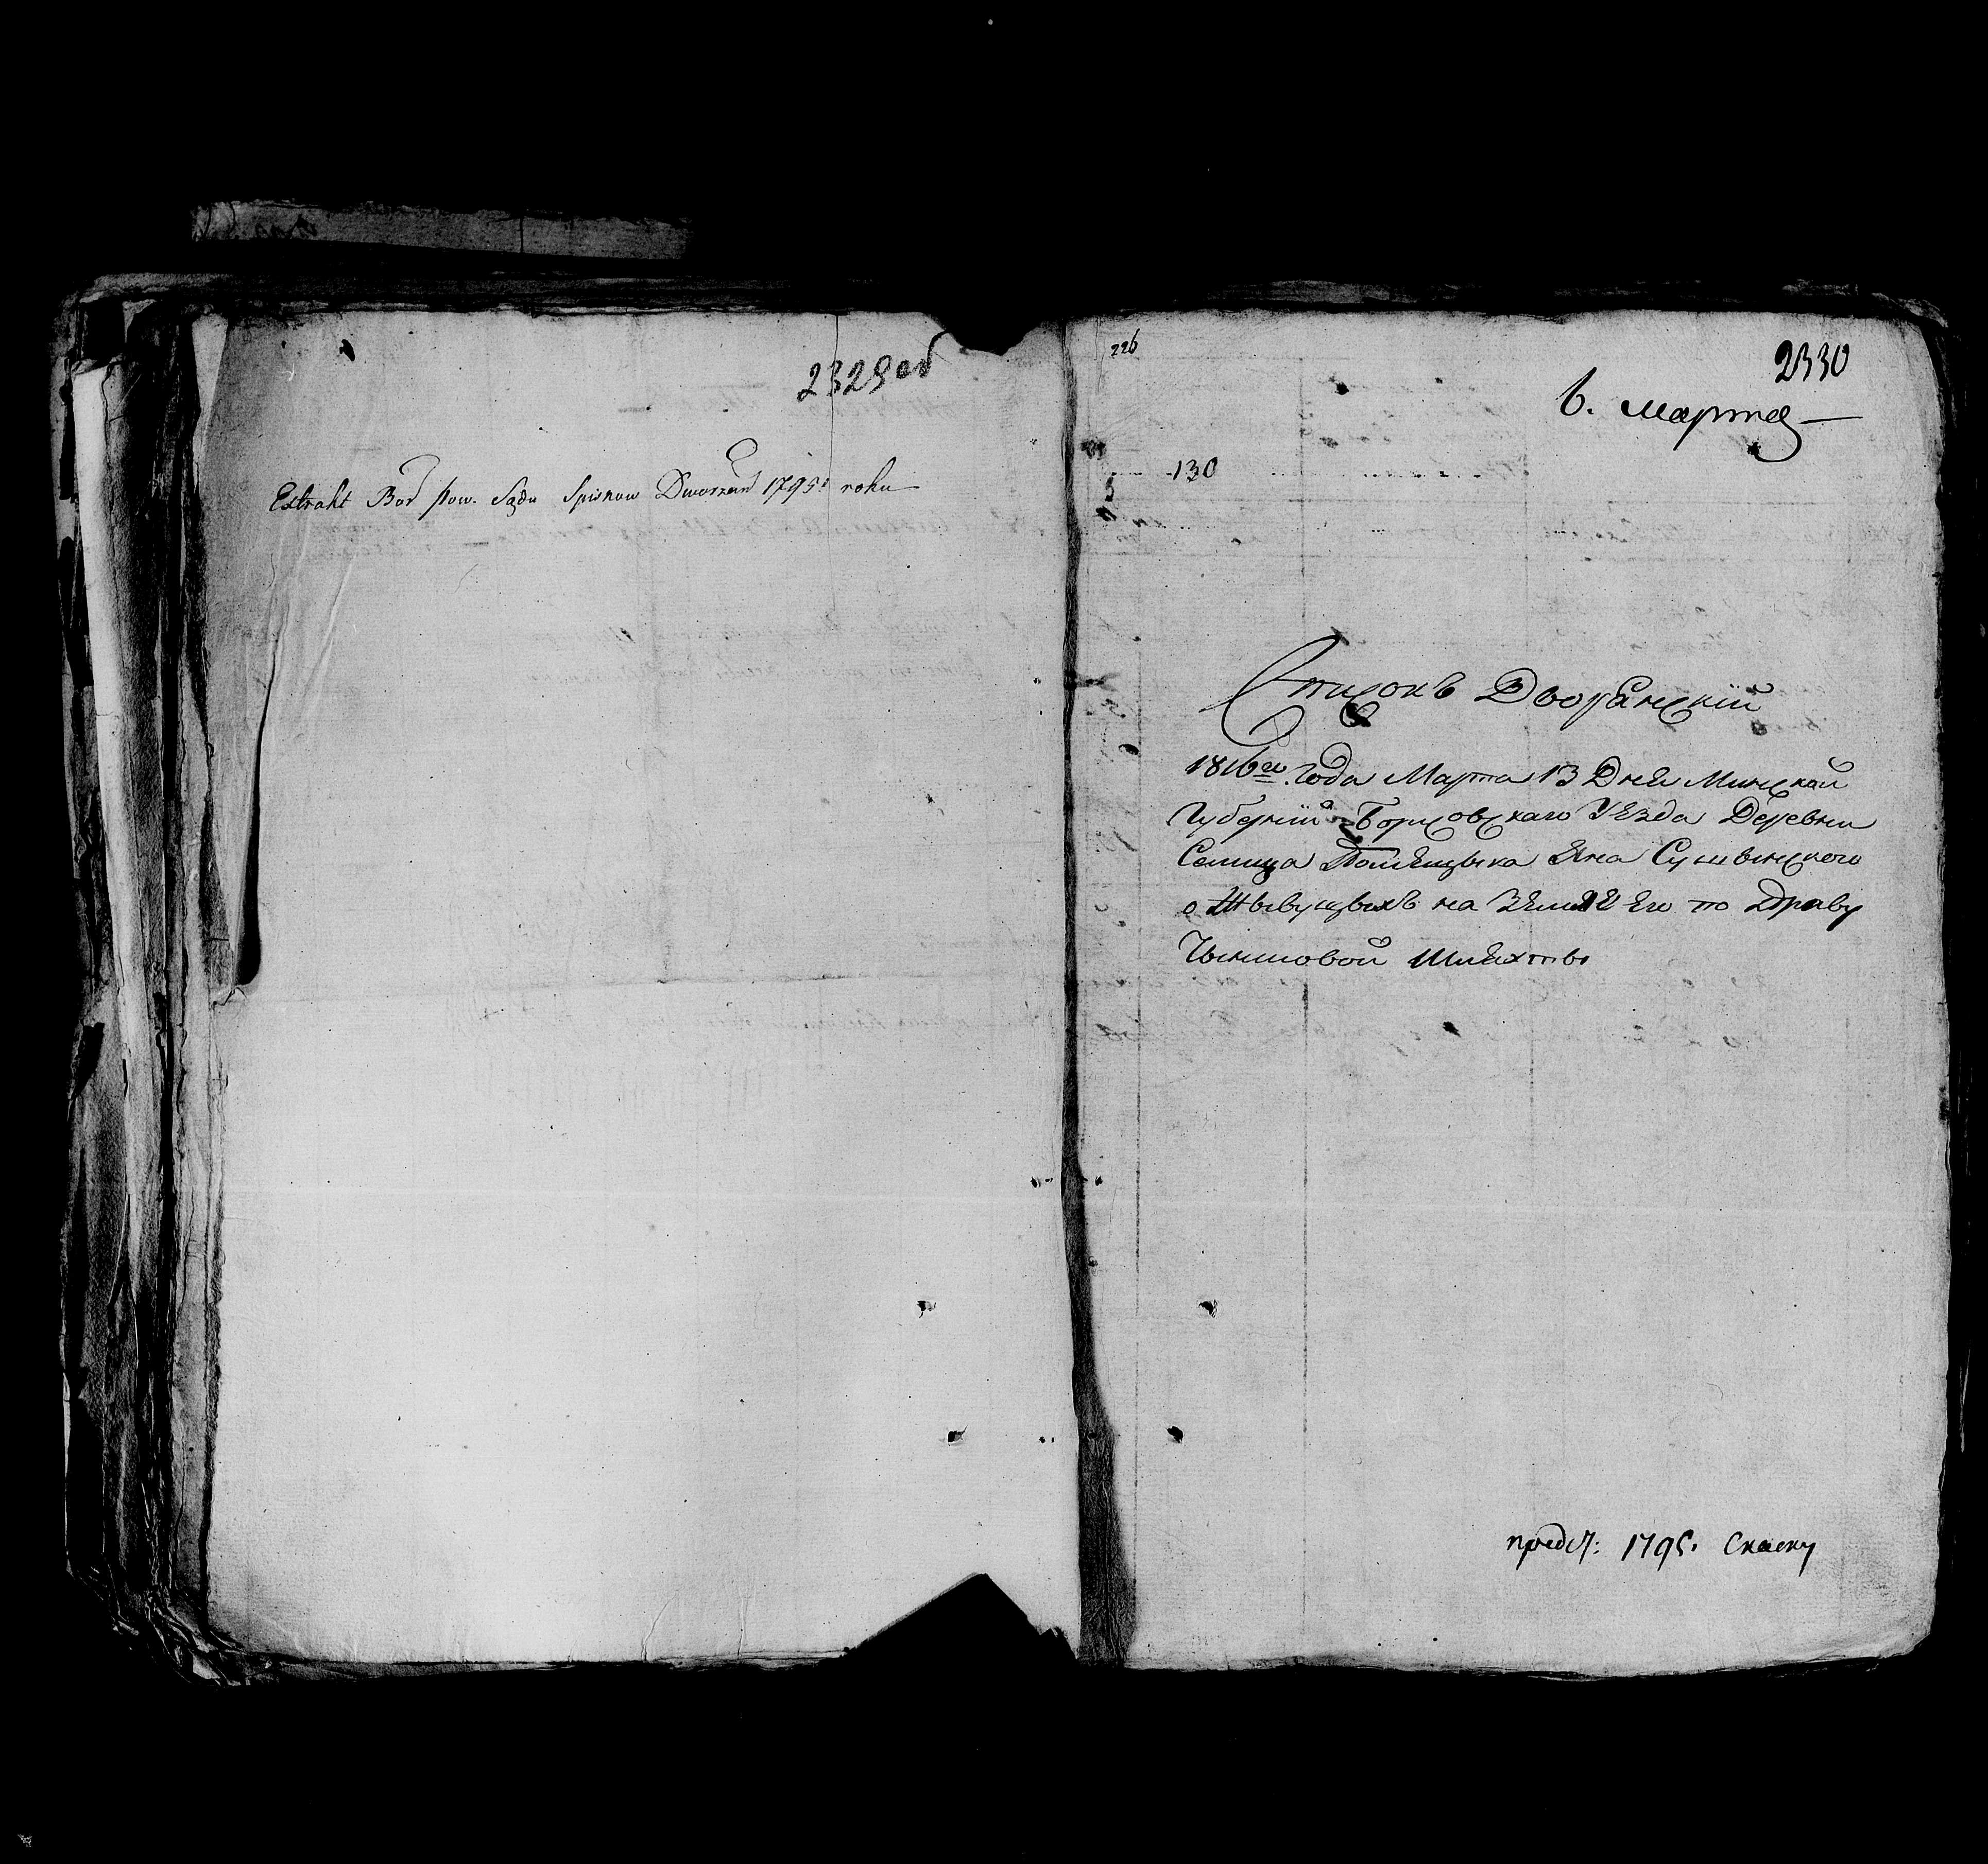 2329об
Extrakt Bor pow. Sądu Spiskow Dworzan 1795 roku
226
2330
6. Марта
130
Списокъ Дворянскій
1816го Года Марта 13 Дня Минской
Губерніи Борисовскаго Уезда Деревни
Селища Помещыка Яна
о Жывущыхъ на Земле Его по Праву
Чыншовой Шляхты
предст: 1795. Скаску